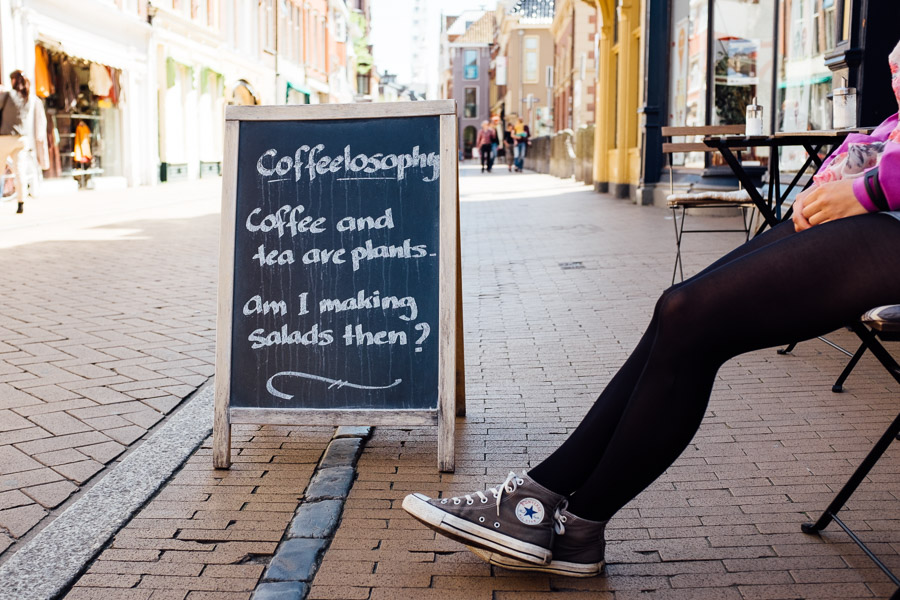 Coffeelosophy
Coffee and
tea are plants.
Am I making
salads then?